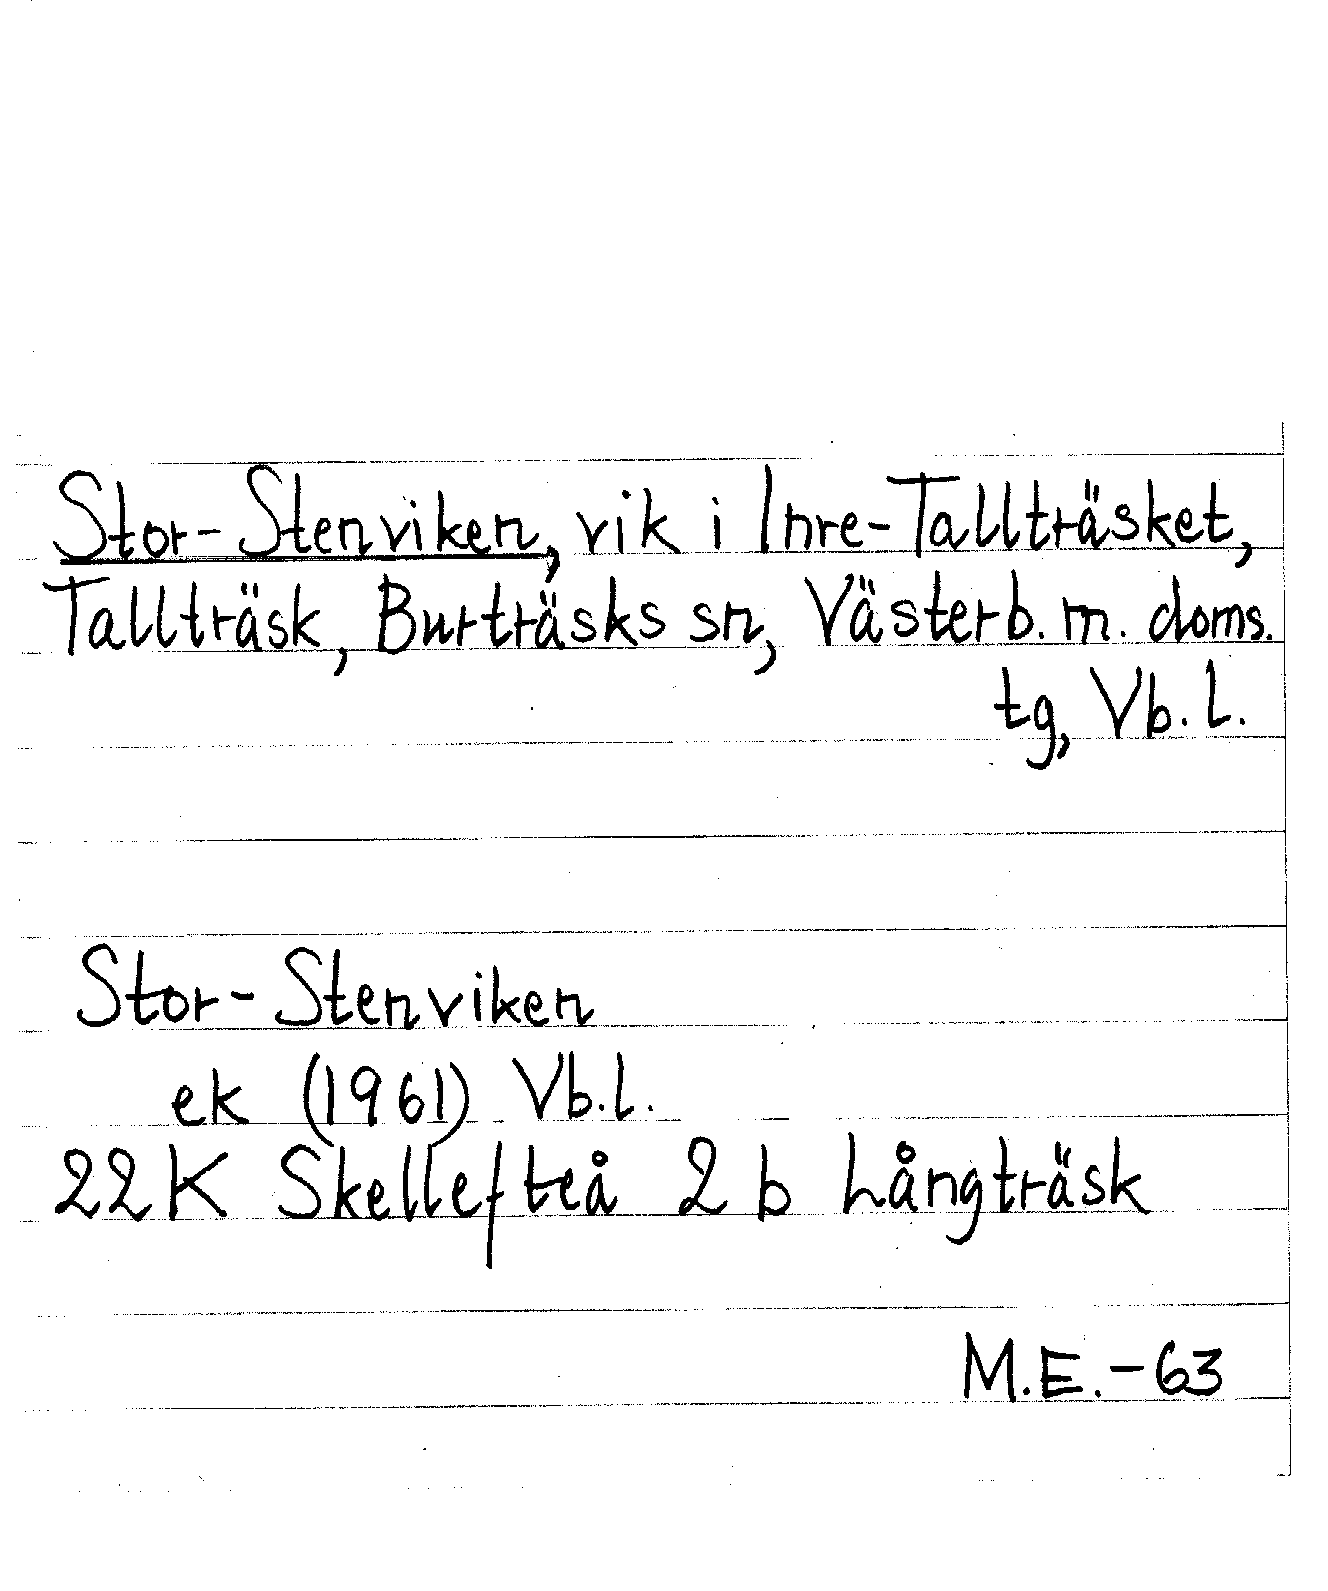 Stor-Stenviken, vik i Inre-Tallträsket,
Tallträsk, Burträsks sn, Västerb. m. doms.
tg, Vb. l.
Stor-Stenviken
ek (1961) Vb.l.
22K Skellefteå 2 b Långträsk
M.E.-63